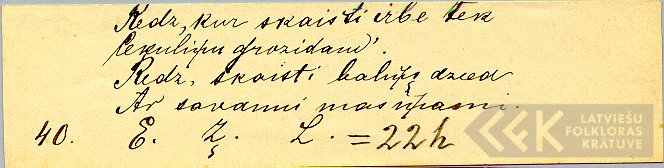 Redz, kur skaisti irbe tek
Cekuliņu grozīdam'.
Redz, skaisti baliņš dzied
Ar savami masiņami.
40. E. Z. L. = 22h
LATVIEŠU
FOLKLORAS
KRĀTUVE